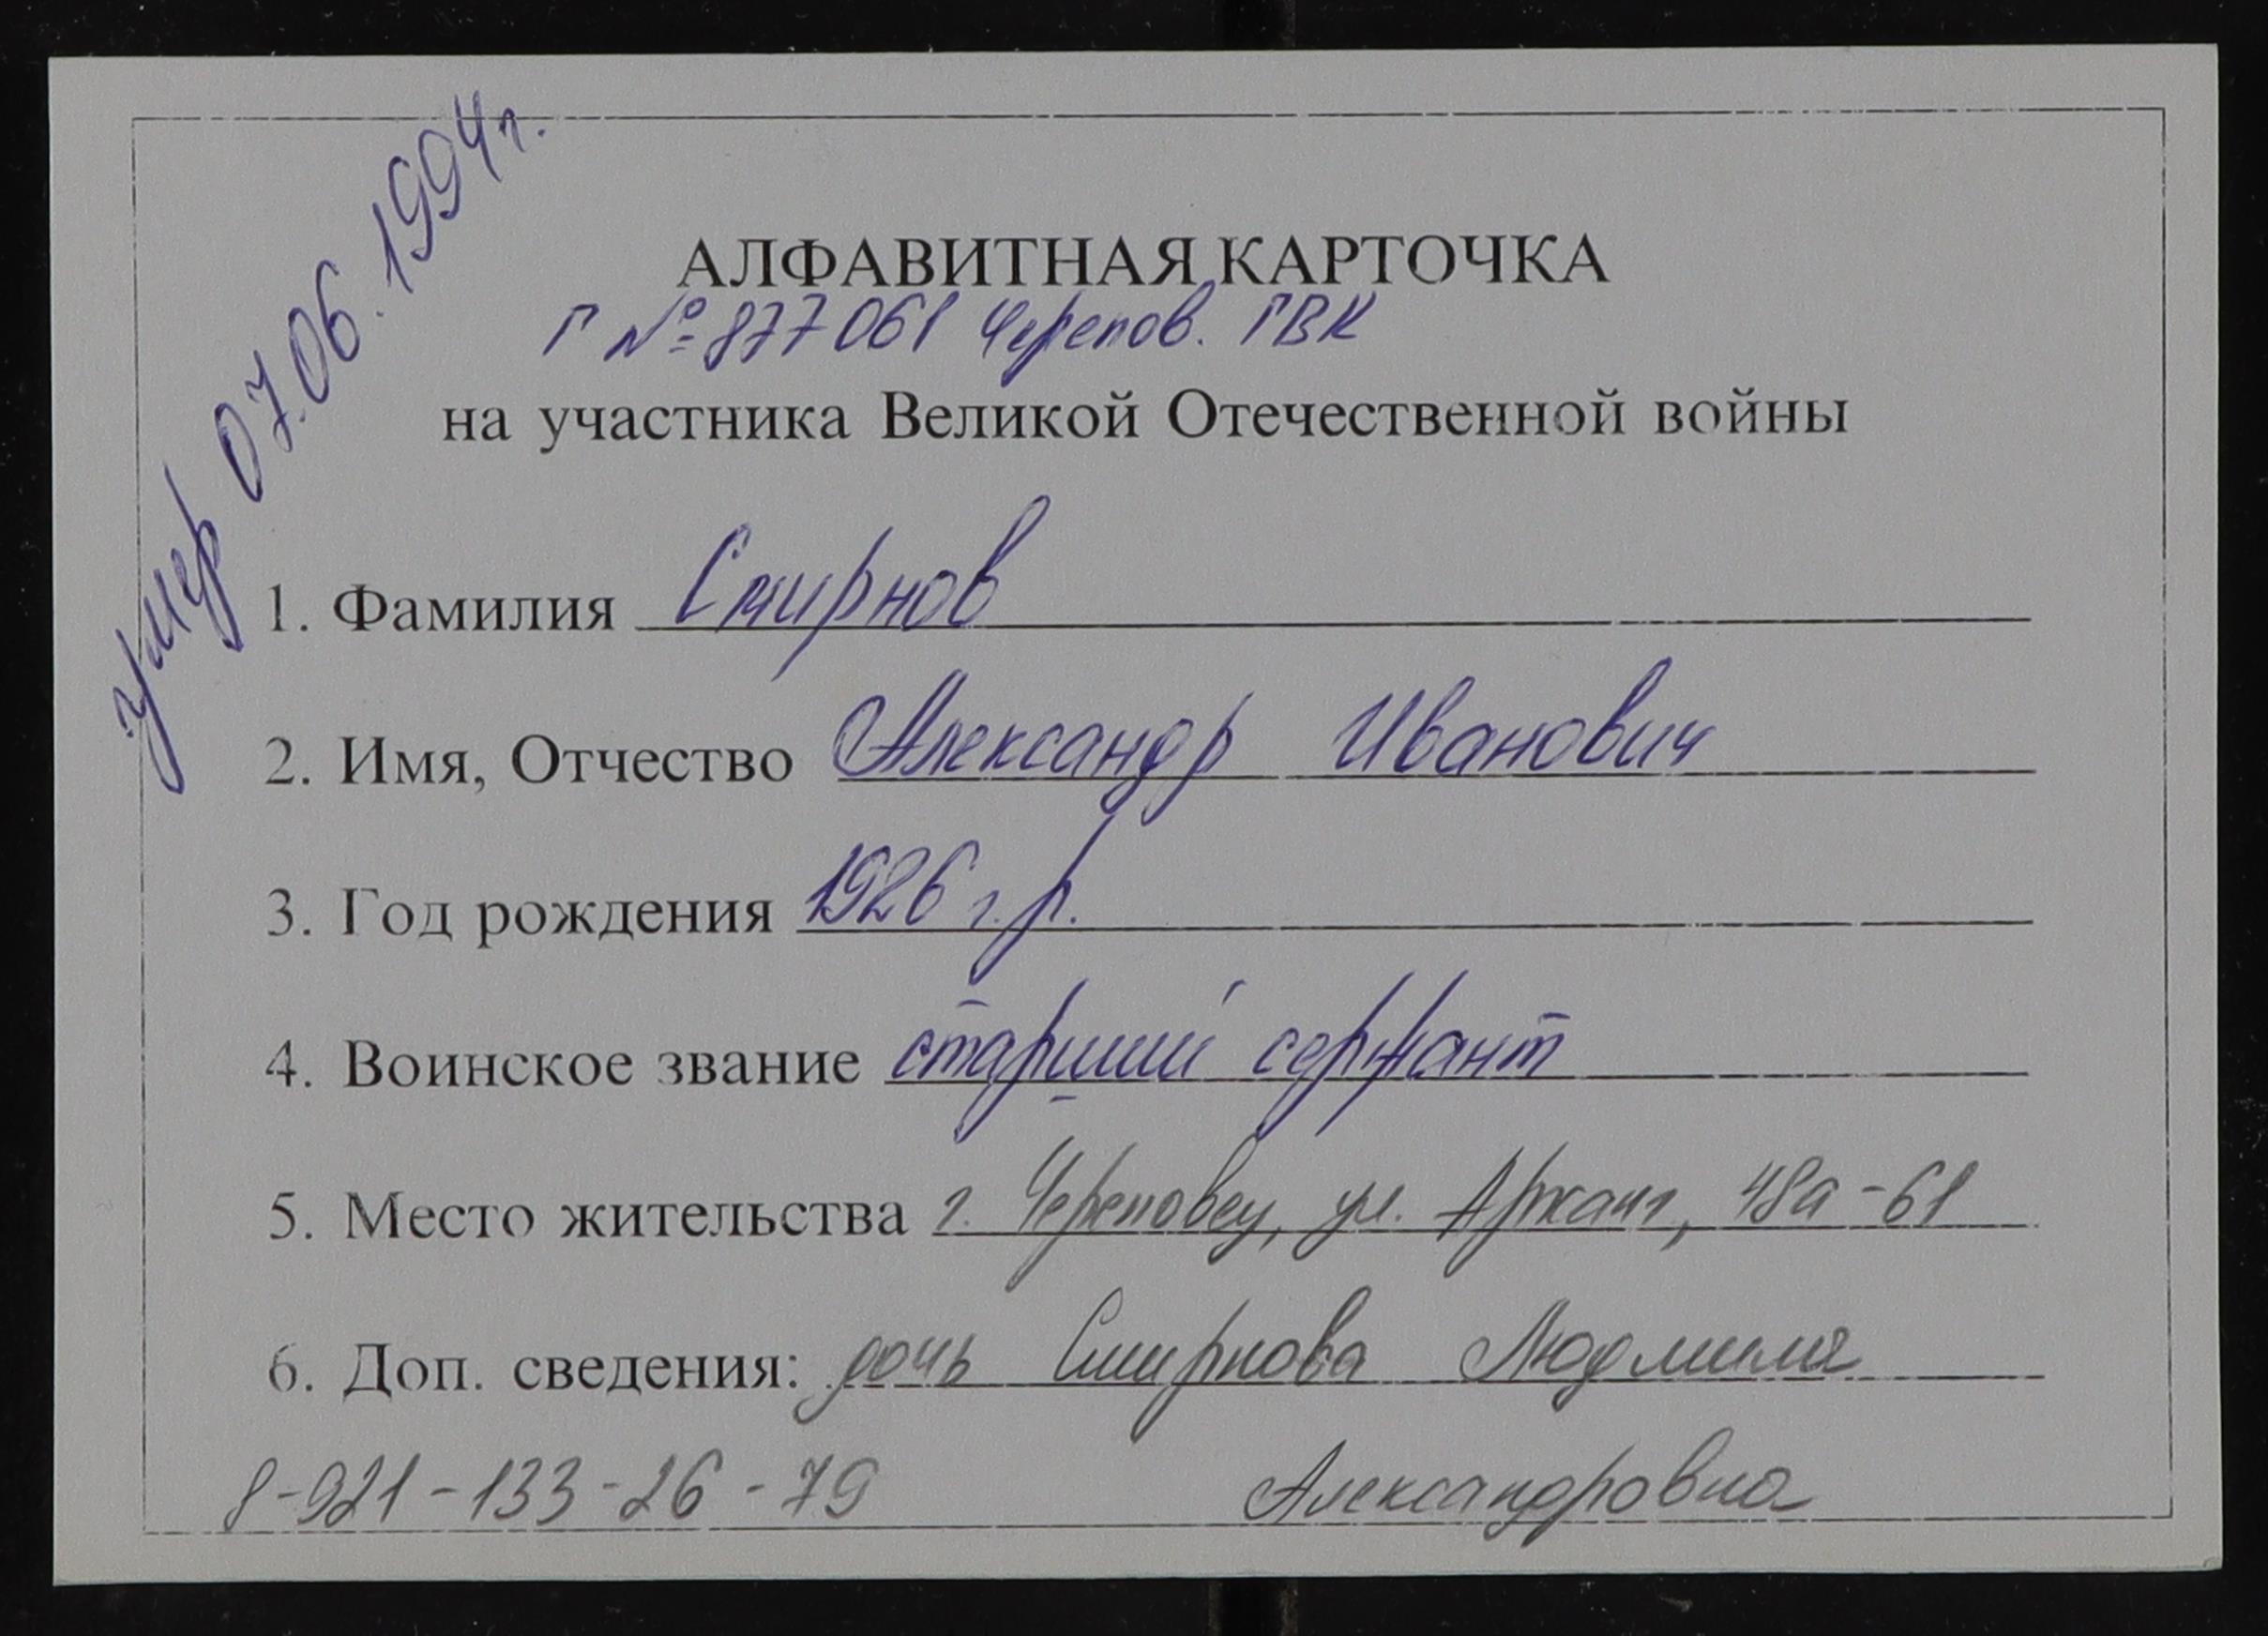 умер 07.06.1994г.
АЛФАВИТНАЯ КАРТОЧКА
Г №877061 Черепов. ГВК
на участника Великой Отечественной войны
1. Фамилия Смирнов
2. Имя, Отчество Александр Иванович
3. Год рождения 1926 г.р.
4. Воинское звание старший сержант
5. Место жительства г. Череповец, ул. Арханг, 48а-61
6. Доп. сведения: дочь Смирнова Людмила
8-921-133-26-79 Александровна